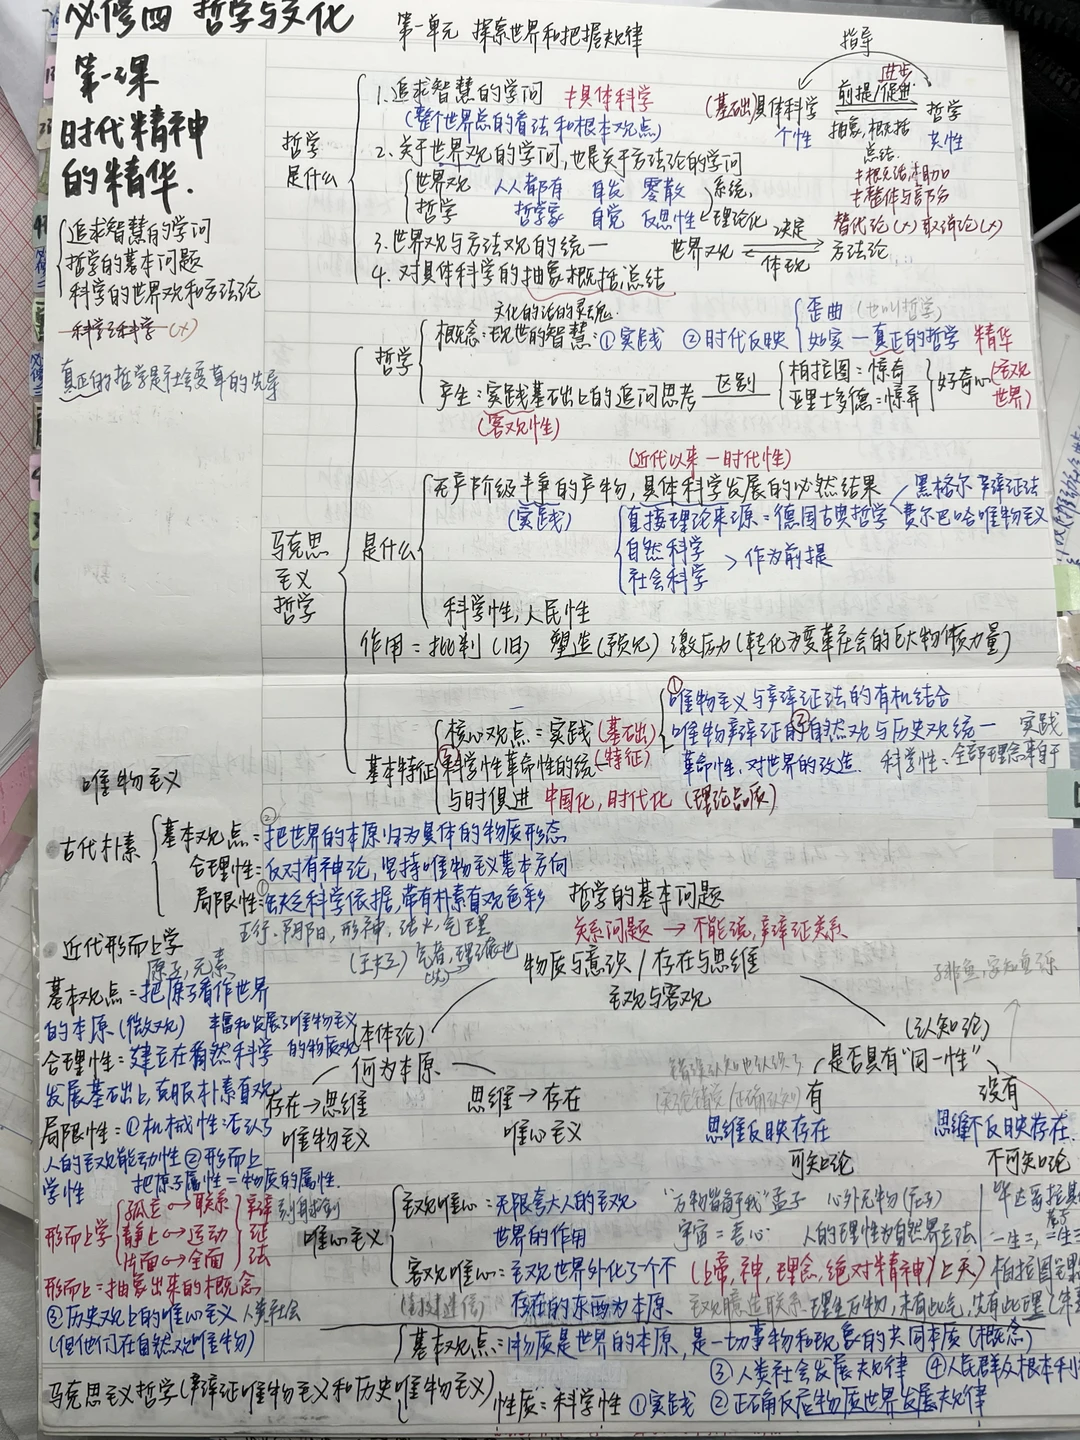 必修四 哲学与文化
第一单元 探索世界和把握规律
第一课
时代精神
的精华.
追求智慧的学问
哲学的基本问题
科学的世界观和方法论
科学之科学(×)
真正的哲学是社会变革的先导
哲学
是什么
1.追求智慧的学问 ≠具体科学
(整个世界总的看法和根本观点)
2.关于世界观的学问,也是关于方法论的学问
世界观 人人都有 自发 零散
哲学 哲学家 自觉 反思性
系统,
理论化
3.世界观与方法观的统一
世界观 决定 体现 方法论
4.对具体科学的抽象概括,总结
指导
进步
(基础)具体科学 前提/促进 哲学
个性 抽象,概括 共性
总结.
≠概括,相加
≠整体与部分
替代论(×) 取消论(×)
哲学
文化的活的灵魂.
概念:现世的智慧:①实践 ②时代反映
歪曲 (也叫哲学)
如实—真正的哲学 精华
产生:实践基础上的追问思考 区别
(客观性)
柏拉图:惊奇
亚里士多德:惊异
好奇心
(主观
世界)
(近代以来—时代性)
马克思
主义
哲学
是什么
无产阶级斗争的产物,具体科学发展的必然结果
(实践)
直接理论来源:德国古典哲学
黑格尔 辩证法
费尔巴哈 唯物主义
自然科学
社会科学
作为前提
科学性,人民性
作用:批判(旧) 塑造(预见) 激励(转化为变革社会的巨大物质力量)
基本特征
核心观点:实践(基础)
科学性革命性的统一(特征)
与时俱进 中国化,时代化 (理论品质)
①唯物主义与辩证法的有机结合
②唯物辩证的自然观与历史观统一
革命性:对世界的改造. 科学性:全部理念来自于
实践
唯物主义
古代朴素
基本观点:把世界的本原归为具体的物质形态
合理性:反对有神论,坚持唯物主义基本方向
局限性:缺乏科学依据,带有朴素直观色彩
五行.阴阳,形神,
近代形而上学
原子,元素
基本观点:把原子看作世界
的本原(微观)
丰富和发展了唯物主义
的物质观
合理性:建立在自然科学
发展基础上,克服朴素直观
局限性:①机械性:否认了
人的主观能动性②形而上
学性 把原子属性=物质的属性.
形而上学
孤立↔联系
静止↔运动
片面↔全面
辩
证
法
形而上:抽象出来的概念
③历史观上的唯心主义 人类社会
(但他们在自然观唯物)
哲学的基本问题
关系问题→不能说,辩证关系
物质与意识/存在与思维
主观与客观
(本体论)
何为本原
存在→思维
唯物主义
思维→存在
唯心主义
(认知论)
是否具有“同一性”
有
思维反映存在
可知论
没有
思维不反映存在.
不可知论
唯心主义
主观唯心:无限夸大人的主观
世界的作用
“万物皆备于我”孟子 心外无物
宇宙=吾心 人的理性为自然界立法
毕达哥拉斯
客观唯心:主观世界外化了个不
存在的东西为本原.
(上帝,神,理念,绝对精神)上天)
未有此气,先有此理
马克思主义哲学(辩证唯物主义和历史唯物主义)
基本观点:物质是世界的本原,是一切事物和现象的共同本质(概念)
③人类社会发展规律 ④人民群众根本利
性质:科学性 ①实践 ②正确反应物质世界发展规律